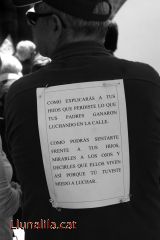 COMO EXPLICARÁS A TUS
HIJOS QUE PERDISTE LO QUE
TUS PADRES GANARON
LUCHANDO EN LA CALLE.
COMO PODRÁS SENTARTE
FRENTE A TUS HIJOS,
MIRARLES A LOS OJOS Y
DECIRLES QUE ELLOS VIVEN
ASÍ PORQUE TU TUVISTE
MIEDO A LUCHAR.
Llunàtic.cat